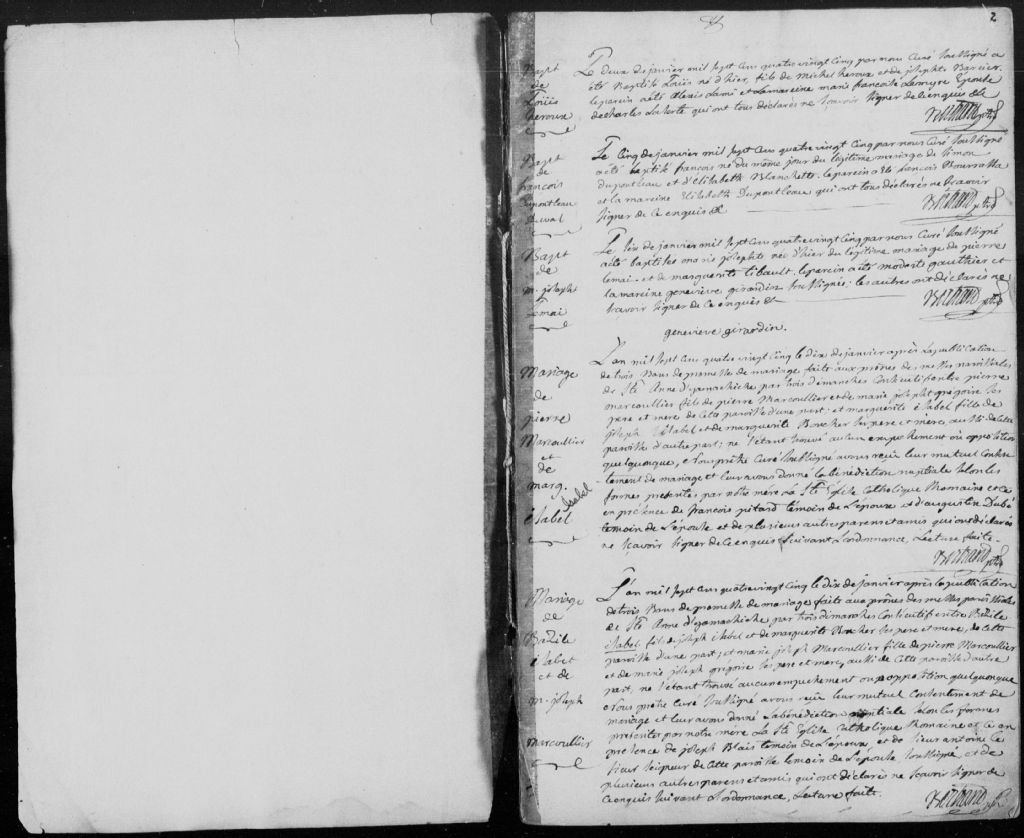 2
Bapt
de
Loüis
heroux
Le deux de janvier mil sept cens quatre vingt cinq par nous Curé soussigné a
été baptisé Loüis né d'hier, fils de Michel heroux et de josephte
le parein a été Alexis Lami et La mareine marie françoise Lamyre Epouse
de charles qui ont tous déclarés ne sçavoir signer de ce enquis &
Bertrand ptre
Bapt
de
françois
duponteau
duval
Le Cinq de janvier mil sept cens quatre vingt cinq par nous Curé soussigné
a été baptisé françois né du même jour du légitime mariage de Simon
duponteau et d'Elizabeth Blanchette. le parein a été françois Bourassa
et la mareine Elizabeth Duponteau qui ont tous déclarés ne sçavoir
signer de ce enquis &
Bertrand ptre
Bapt
de
m. joseph
Lemai
Le Six de janvier mil sept cens quatre vingt cinq par nous Curé soussigné
a été baptisée marie josephte née d'hier du légitime mariage de pierre
lemai et de marguerite tibault. le parein a été modeste gauthier et
la mareine geneviève girardin soussignée; les autres ont déclarés ne
sçavoir signer de ce enquis &
Bertrand ptre
genevieve girardin.
Mariage
de
pierre
Marcoullier
et
de
marg.
isabel
Isabel
L'an mil sept cens quatre vingt cinq le dix de janvier après la publication
de trois Bans de promesse de mariage faite aux prônes des messes paroissiales
de Ste Anne d'yamachiche par trois dimanches Consécutif entre pierre
marcoullier fils de pierre Marcoullier et de marie joseph grégoire ses
pere et mere de cette paroisse d'une part; et marguerite isabel fille de
joseph isabel et de marguerite Boucher ses pere et mere, aussi de cette
paroisse d'autre part; ne s'étant trouvé aucun empêchement ou opposition
quelquonque, Nous prêtre Curé soussigné avons reçu leur mutuel Consen
tement de mariage et leur avons donné la bénédiction nuptiale selon les
formes présentés par notre mère La Ste Eglise Catholique Romaine et ce
en présence de françois pitard témoin de L'époux et d'augustin Dubé
témoin de L'épouse et de plusieurs autres parens et amis qui ont déclarés
ne sçavoir signer de ce enquis suivant L'ordonnance, Lecture faite.
Bertrand ptre
Mariage
de
Bazile
isabel
et de
m. joseph
Marcoullier
L'an mil sept cens quatre vingt cinq le dix de janvier après la publication
de trois Bans de promesse de mariage faite aux prônes des messes paroissiales
de Ste Anne d'yamachiche par trois dimanches Consécutif entre Bazile
isabel fils de joseph isabel et de marguerite Boucher ses pere et mere, de cette
paroisse d'une part; et marie joseph Marcoullier fille de pierre Marcoullier
et de marie joseph grégoire ses pere et mere, aussi de cette paroisse d'autre
part, ne s'étant trouvé aucun empêchement ou opposition quelquonque
Nous prêtre Curé soussigné avons reçu leur mutuel Consentement de
mariage et leur avons donné La bénédiction nuptiale selon les formes
présentés par notre mère La Ste Eglise Catholique Romaine et ce en
présence de joseph Blais témoin de L'époux et de sieur antoine Le
sieur seigneur de cette paroisse témoin de L'épouse soussigné et de
plusieurs autres parens et amis qui ont déclarés ne sçavoir signer de
ce enquis suivant L'ordonnance, Lecture faite.
Bertrand ptre